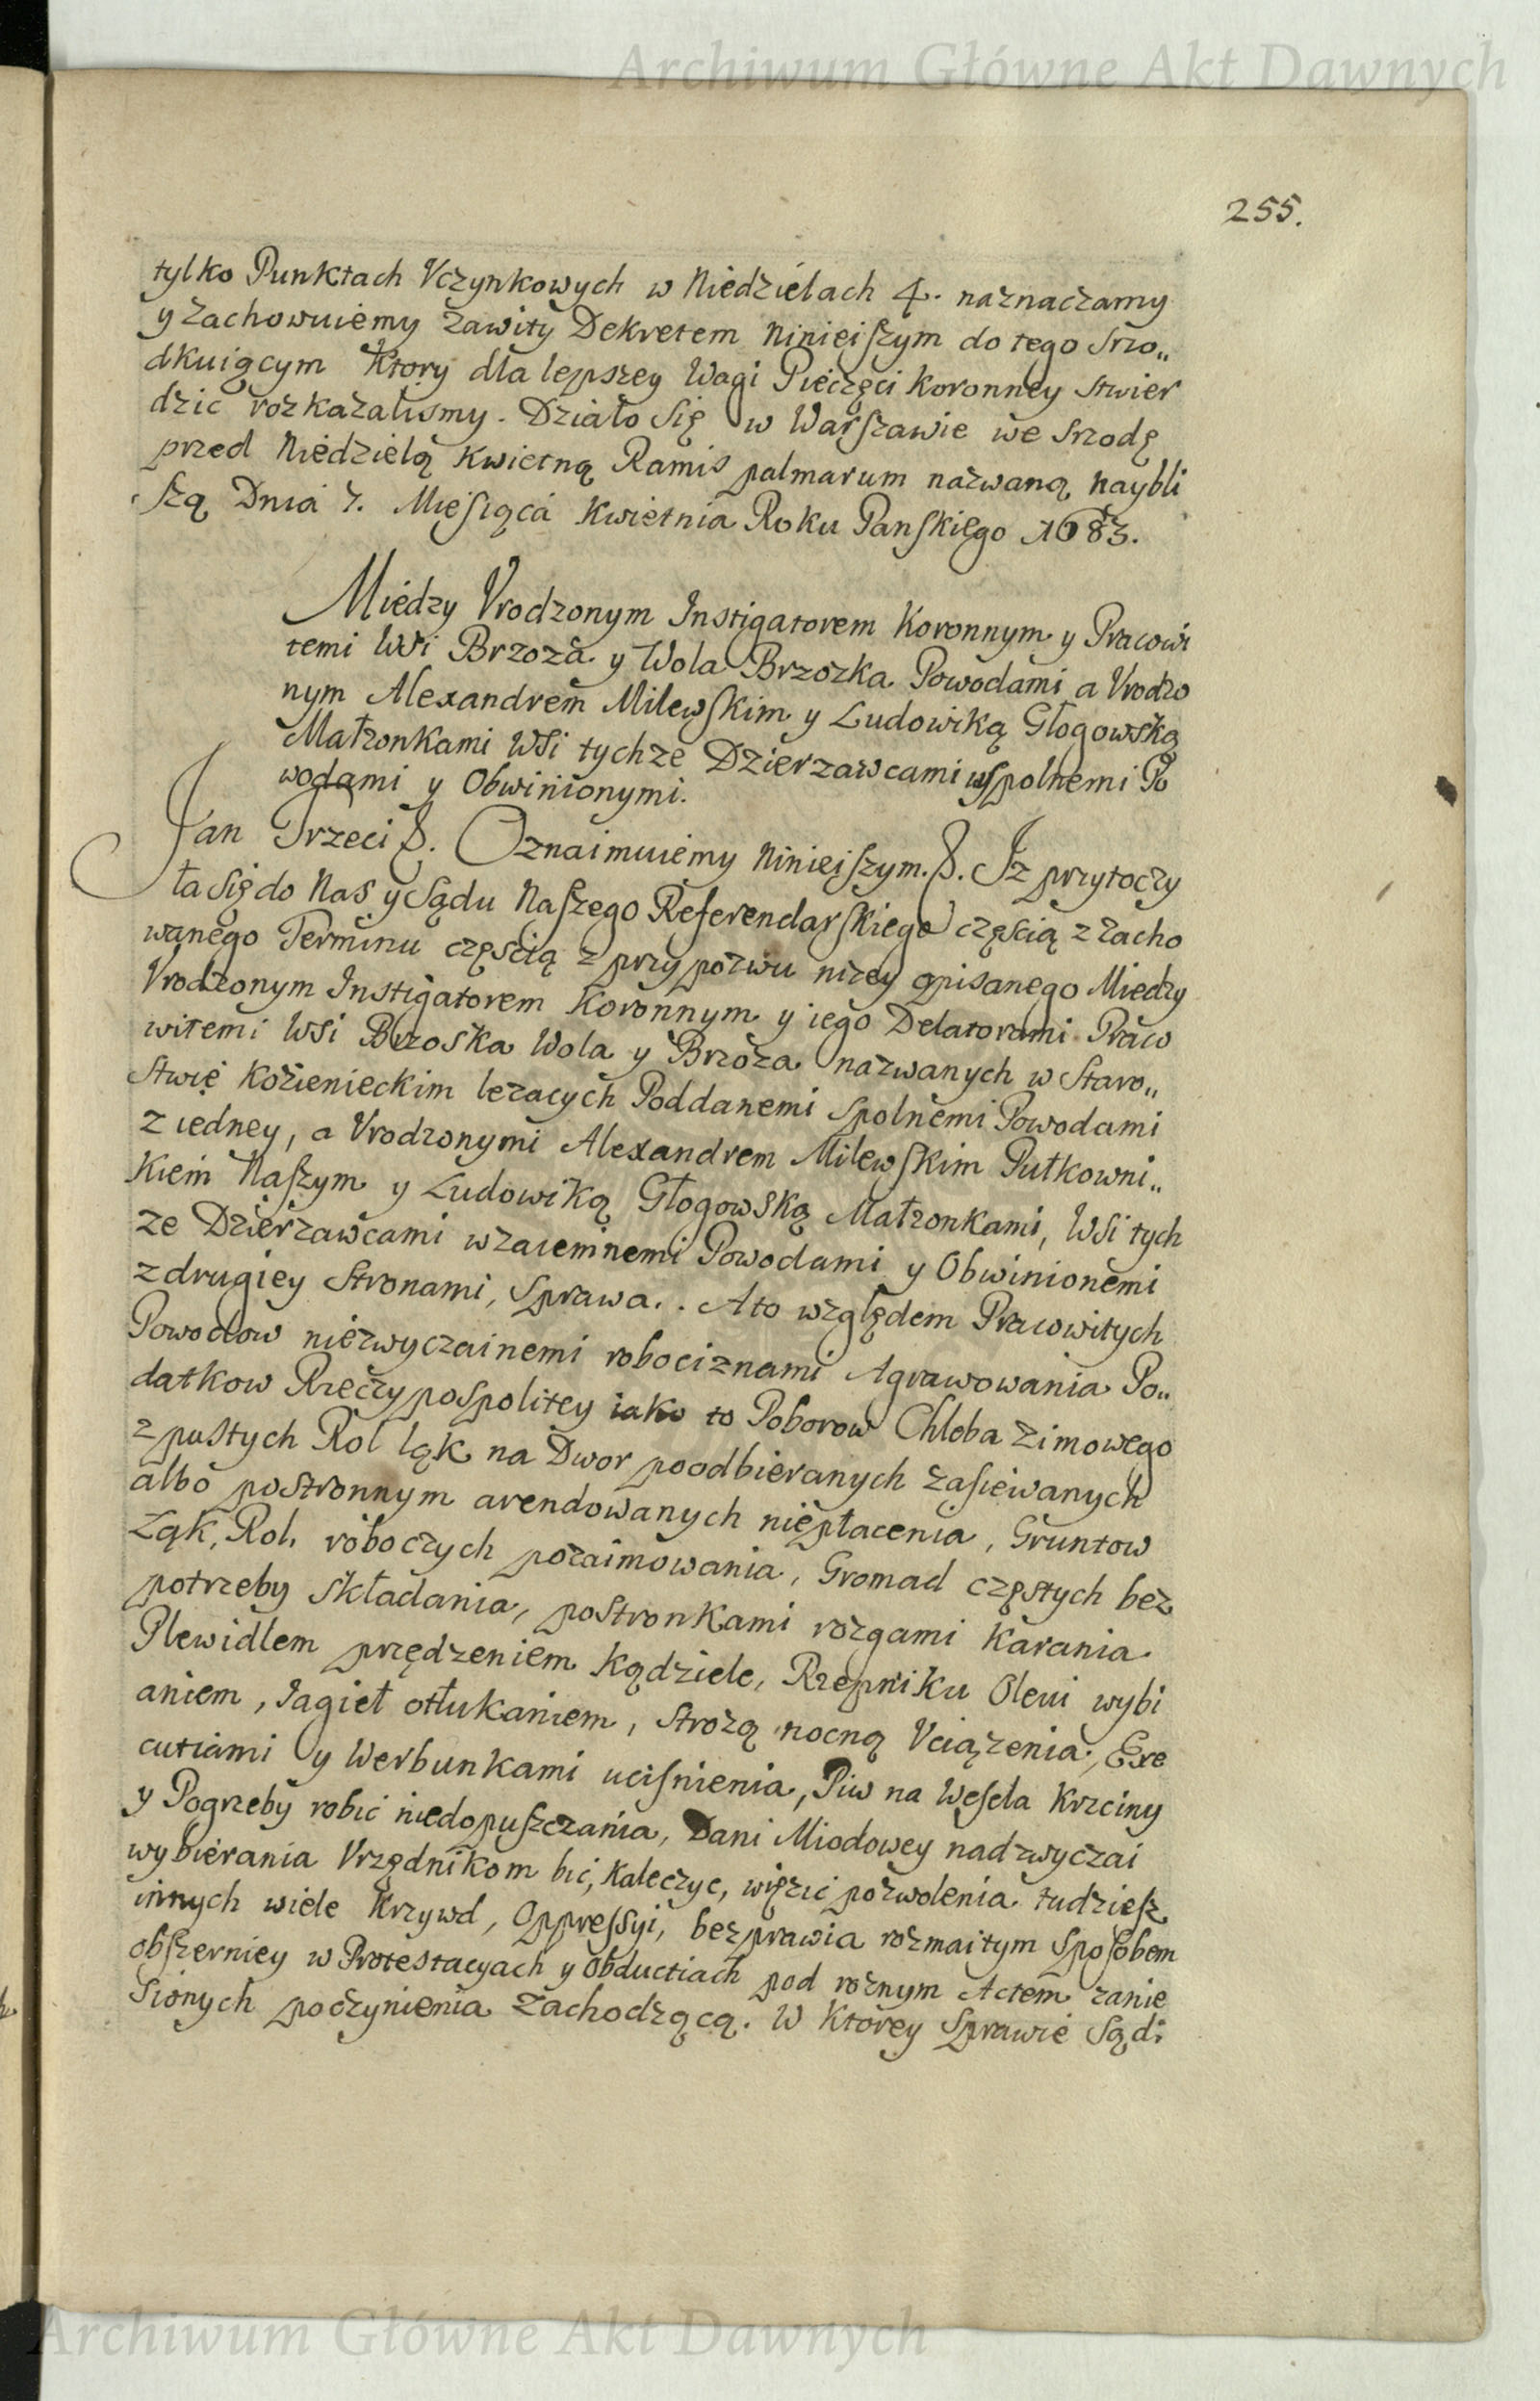 Archiwum Główne Akt Dawnych
255.
tylko Punktach Vczynkowych w Niedzielach 4. naznaczamy
y zachowuiemy zawity Dekretem Ninieiszym do tego srzo„
dkuiącym Ktory dla lepszey Wagi Pieczęci Koronney stwier
dzic rozkazalismy. Działo się w Warszawie we srzodę
przed Niedzielą Kwietną Ramis palmarum nazwaną naybli
szą Dnia 7. Miesiąca Kwietnia Roku Panskiego 1683.
Między Vrodzonym Instigatorem Koronnym y Pracowi
temi Wsi Brzoza y Wola Brzozka Powodami a Vrodzo
nym Alexandrem Milewskim y Ludowiką Głogowską
Małzonkami Wsi tychze Dzierzawcami wspolnemi Po
wodami y Obwinionymi.
Jan Trzeci &. Oznaimuiemy Ninieiszym. &. Iz przytoczy
ła się do Nas y Sądu Naszego Referendarskiego częscią z zacho
wanego Terminu częscią z przypozwu nizey opisanego Miedzy
Vrodzonym Instigatorem Koronnym y iego Delatorami Praco
witemi Wsi Brzoska Wola y Brzoza nazwanych w Staro„
stwie Kozienieckim lezacych Poddanemi spolnemi Powodami
z iedney, a Vrodzonymi Alexandrem Milewskim Pułkowni„
Kiem Naszym y Ludowiką Głogowską Małzonkami, Wsi tych
ze Dzierzawcami wzaiemnemi Powodami y Obwinionemi
z drugiey stronami, sprawa. . A to względem Pracowitych
Powodow niezwyczainemi robociznami Agrawowania Po„
datkow Rzeczypospolitey iako to Poborow Chleba zimowego
z pustych Rol łąk na Dwor poodbieranych zasiewanych
albo postronnym arendowanych niepłacenia, Gruntow
Łąk, Rol. roboczych pozaimowania, Gromad częstych bez
potrzeby składania, postronkami rozgami Karania
Plewidlem przędzeniem Kądziele, Rzepniku Oleiu wybi
aniem, Jagieł otłukaniem, strozą nocną Vciązenia, Exe
cutiami y Werbunkami ucisnienia, Piw na Wesela Krzciny
y Pogrzeby robic niedopuszczania, Dani Miodowey nadzwyczai
wybierania Vrzędnikom bic, Kaleczyc, więzic pozwolenia tudziesz
innych wiele Krzywd, Oppressyi, bezprawia rozmaitym sposobem
obszerniey w Protestacyach y Obductiach pod roznym Actem zanie
sionych poczynienia zachodzącą. W Ktorey sprawie Sądi
Archiwum Główne Akt Dawnych